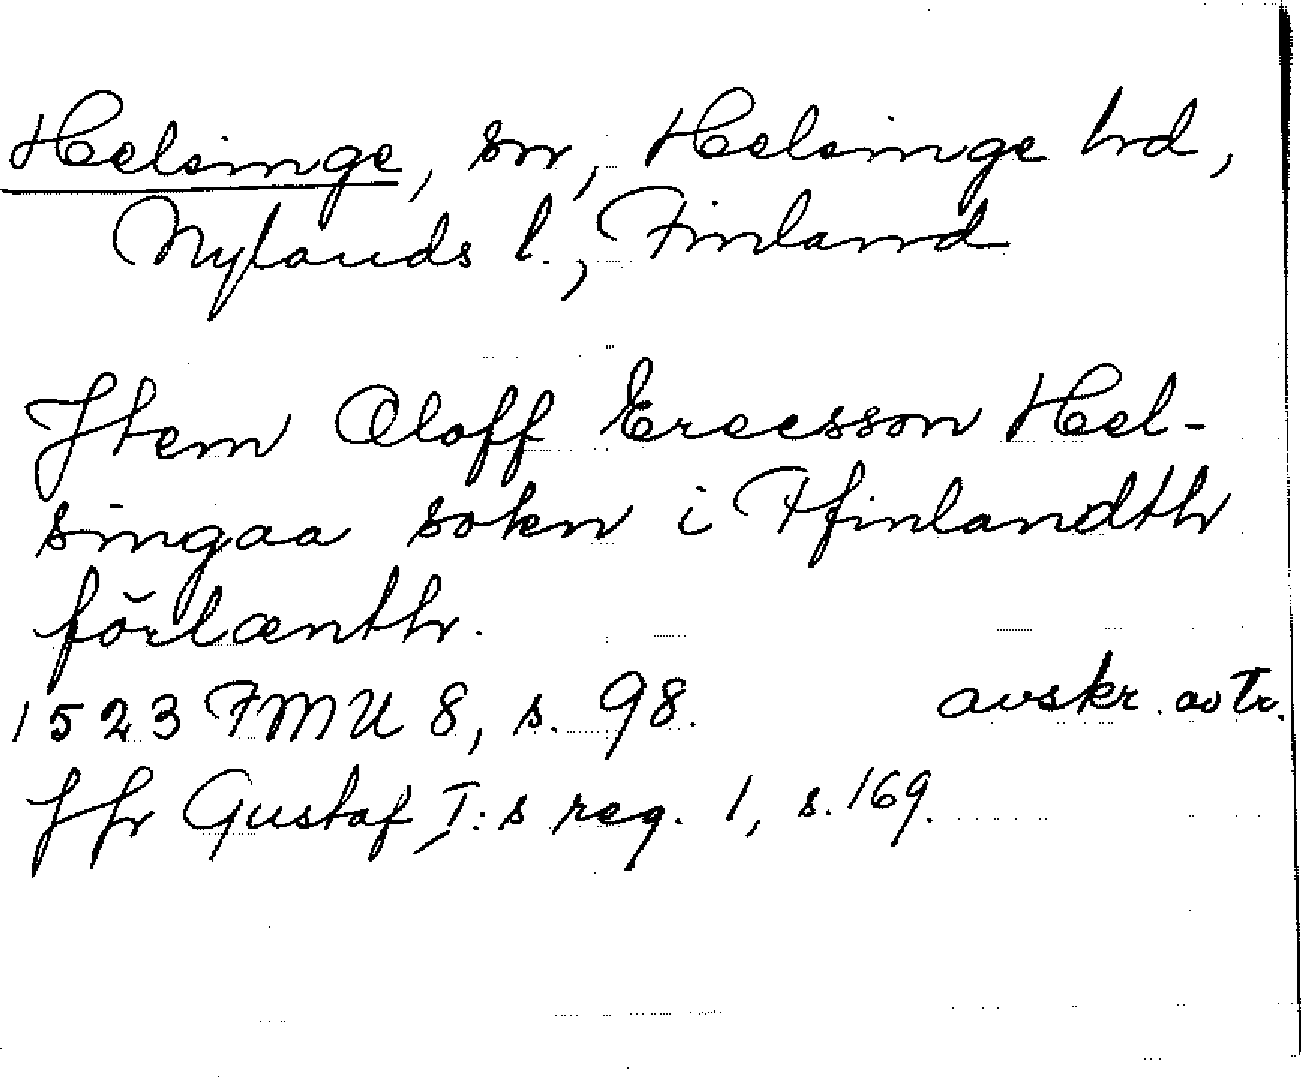 Helsinge, sn, Helsinge hd,
Nylands l., Finland
Item Oloff Ericsson Hel-
singaa sokn i Ffinlandth
förlænth.
1523 FMU 8, s. 98. avskr. av tr.
Jfr Gustaf I:s reg. 1, s. 169.